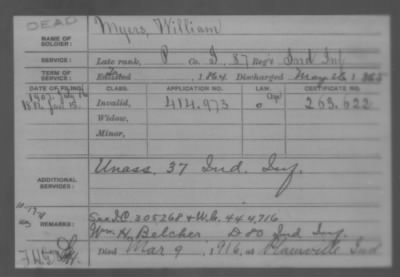 DEAD
Myers, William
NAME OF SOLDIER:
SERVICE: Late rank, P Co. I, 87 Reg't Ind Inf
TERM OF SERVICE: Enlisted 1864 Discharged May 26, 1865
DATE OF FILING. CLASS. APPLICATION NO. LAW. CERTIFICATE NO.
Invalid, 414.973 263.622
Widow,
Minor,
ADDITIONAL SERVICES: Unass. 37 Ind. Inf.
REMARKS: See I.C. 305268 & W.C. 444,716
Wm. H. Belcher D 80 Ind Inf.
Died Mar 9, 1916, at Plainville Ind